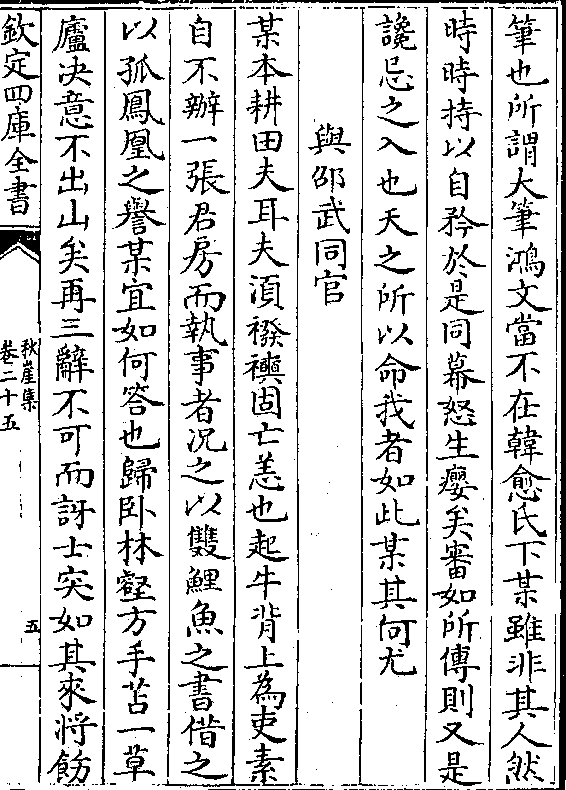 筆也所謂大筆鴻文當不在韓愈氏下某雖非其人然
時時持以自矜於是同幕怒生癭矣審如所傳則又是
讒忌之入也天之所以命我者如此某其何尤
與邵武同官
某本耕田夫耳夫須襏襫固亡恙也起牛背上為吏素
自不辦一張君房而執事者况之以雙鯉魚之書借之
以孤鳳凰之譽某宜如何答也歸卧林壑方手苫一草
廬决意不出山矣再三辭不可而訝士突如其來將飭
欽定四庫全書
秋崖集
卷二十五
五